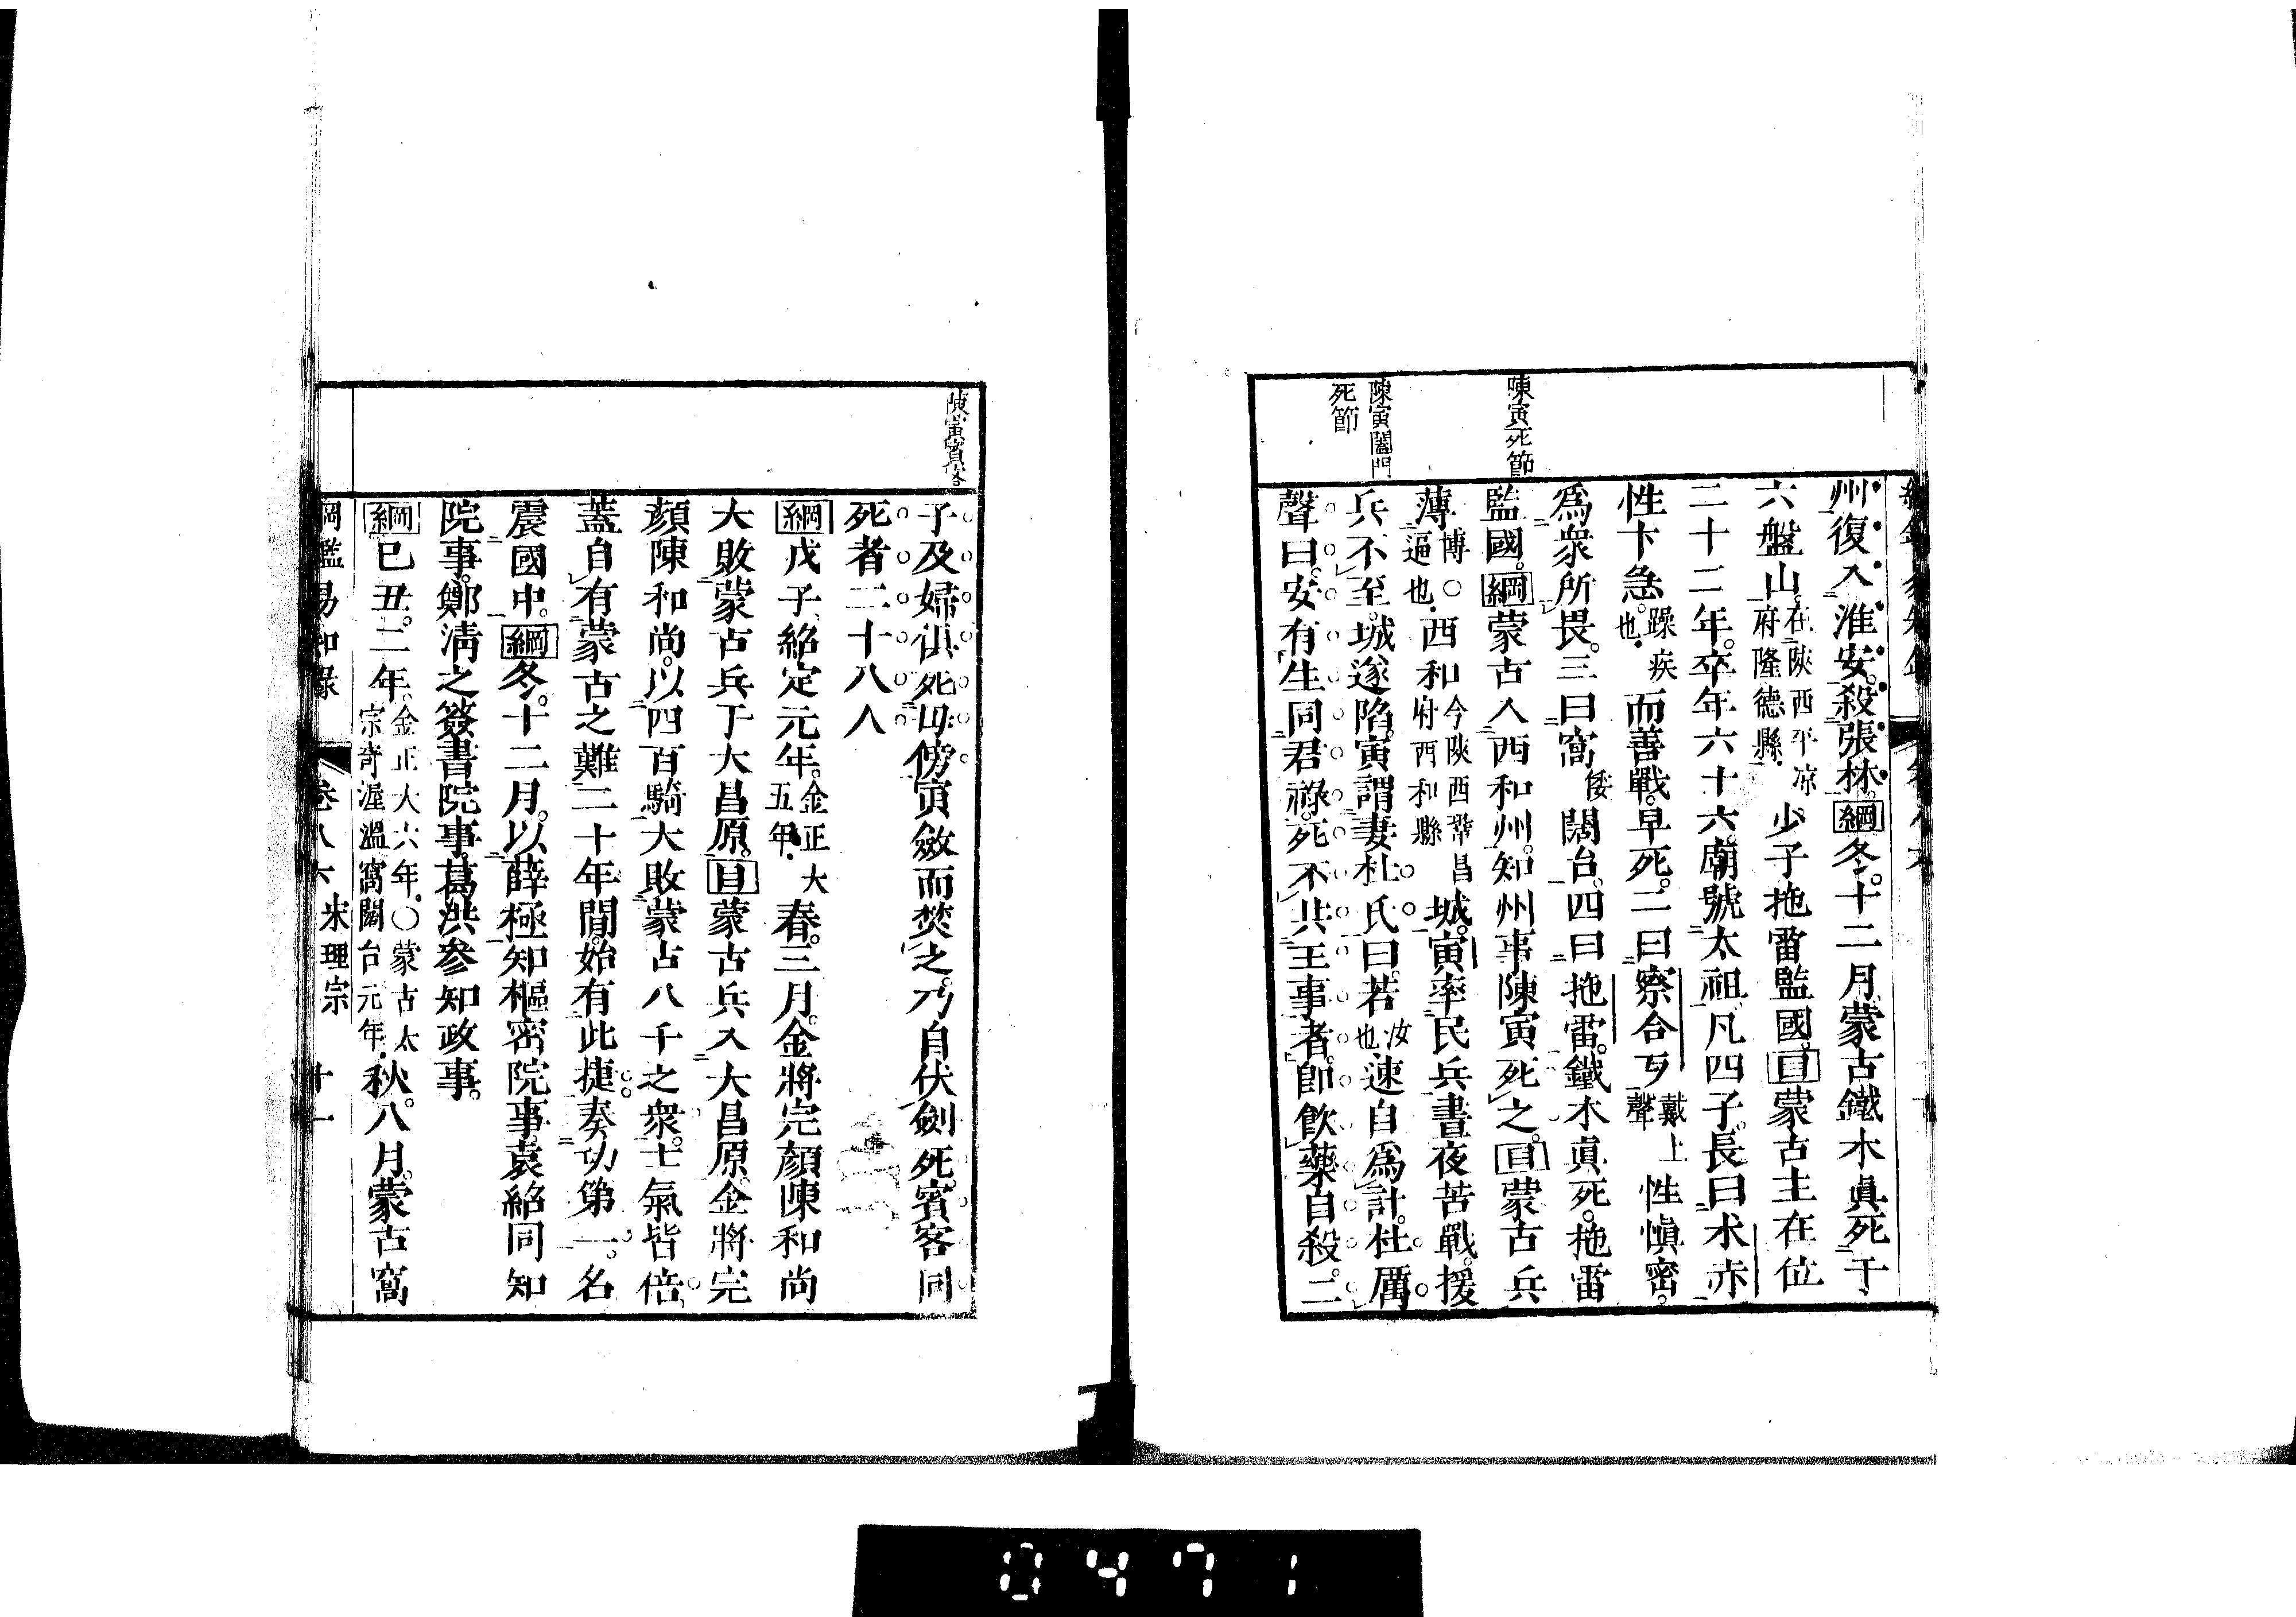 州復入淮安。殺張林。綱冬。十二月。蒙古鐵木眞死于
六盤山。在陝西平凉府隆德縣。少子拖雷監國。目蒙古主在位
二十二年。卒年六十六。廟號太祖。凡四子。長曰朮赤
性卞急。躁疾也。而善戰。早死。二曰察合歹戴上聲性愼密。
爲衆所畏。三曰窩倭闊台。四曰拖雷。鐵木眞死。拖雷
監國。綱蒙古入西和州。知州事陳寅死之。目蒙古兵
薄博○逼也。西和今陝西鞏昌府西和縣。城。寅率民兵晝夜苦戰。援
兵不至。城遂陷。寅謂妻杜氏曰。若汝也速自爲計。杜厲
聲曰。安有生同君祿。死不共王事者。卽飮藥自殺。二
陳寅死節
陳寅闔門
死節
子及婦俱死母傍。寅斂而焚之。乃自伏劍死。賓客同
死者二十八人
綱戊子紹定元年。金正大五年。春。三月。金將完顏陳和尚
大敗蒙古兵于大昌原。目蒙古兵入大昌原。金將完
顏陳和尚。以四百騎大敗蒙古八千之衆。士氣皆倍。
蓋自有蒙古之難二十年間。始有此捷。奏功第一。名
震國中。綱冬。十二月。以薛極知樞密院事。袁紹同知
院事。鄭淸之簽書院事。葛洪參知政事。
綱己丑。二年。金正大六年。○蒙古太宗奇渥溫窩闊台元年。秋。八月。蒙古窩
陳寅賓客
綱鑑易知錄 卷八六 宋理宗 十一
0471